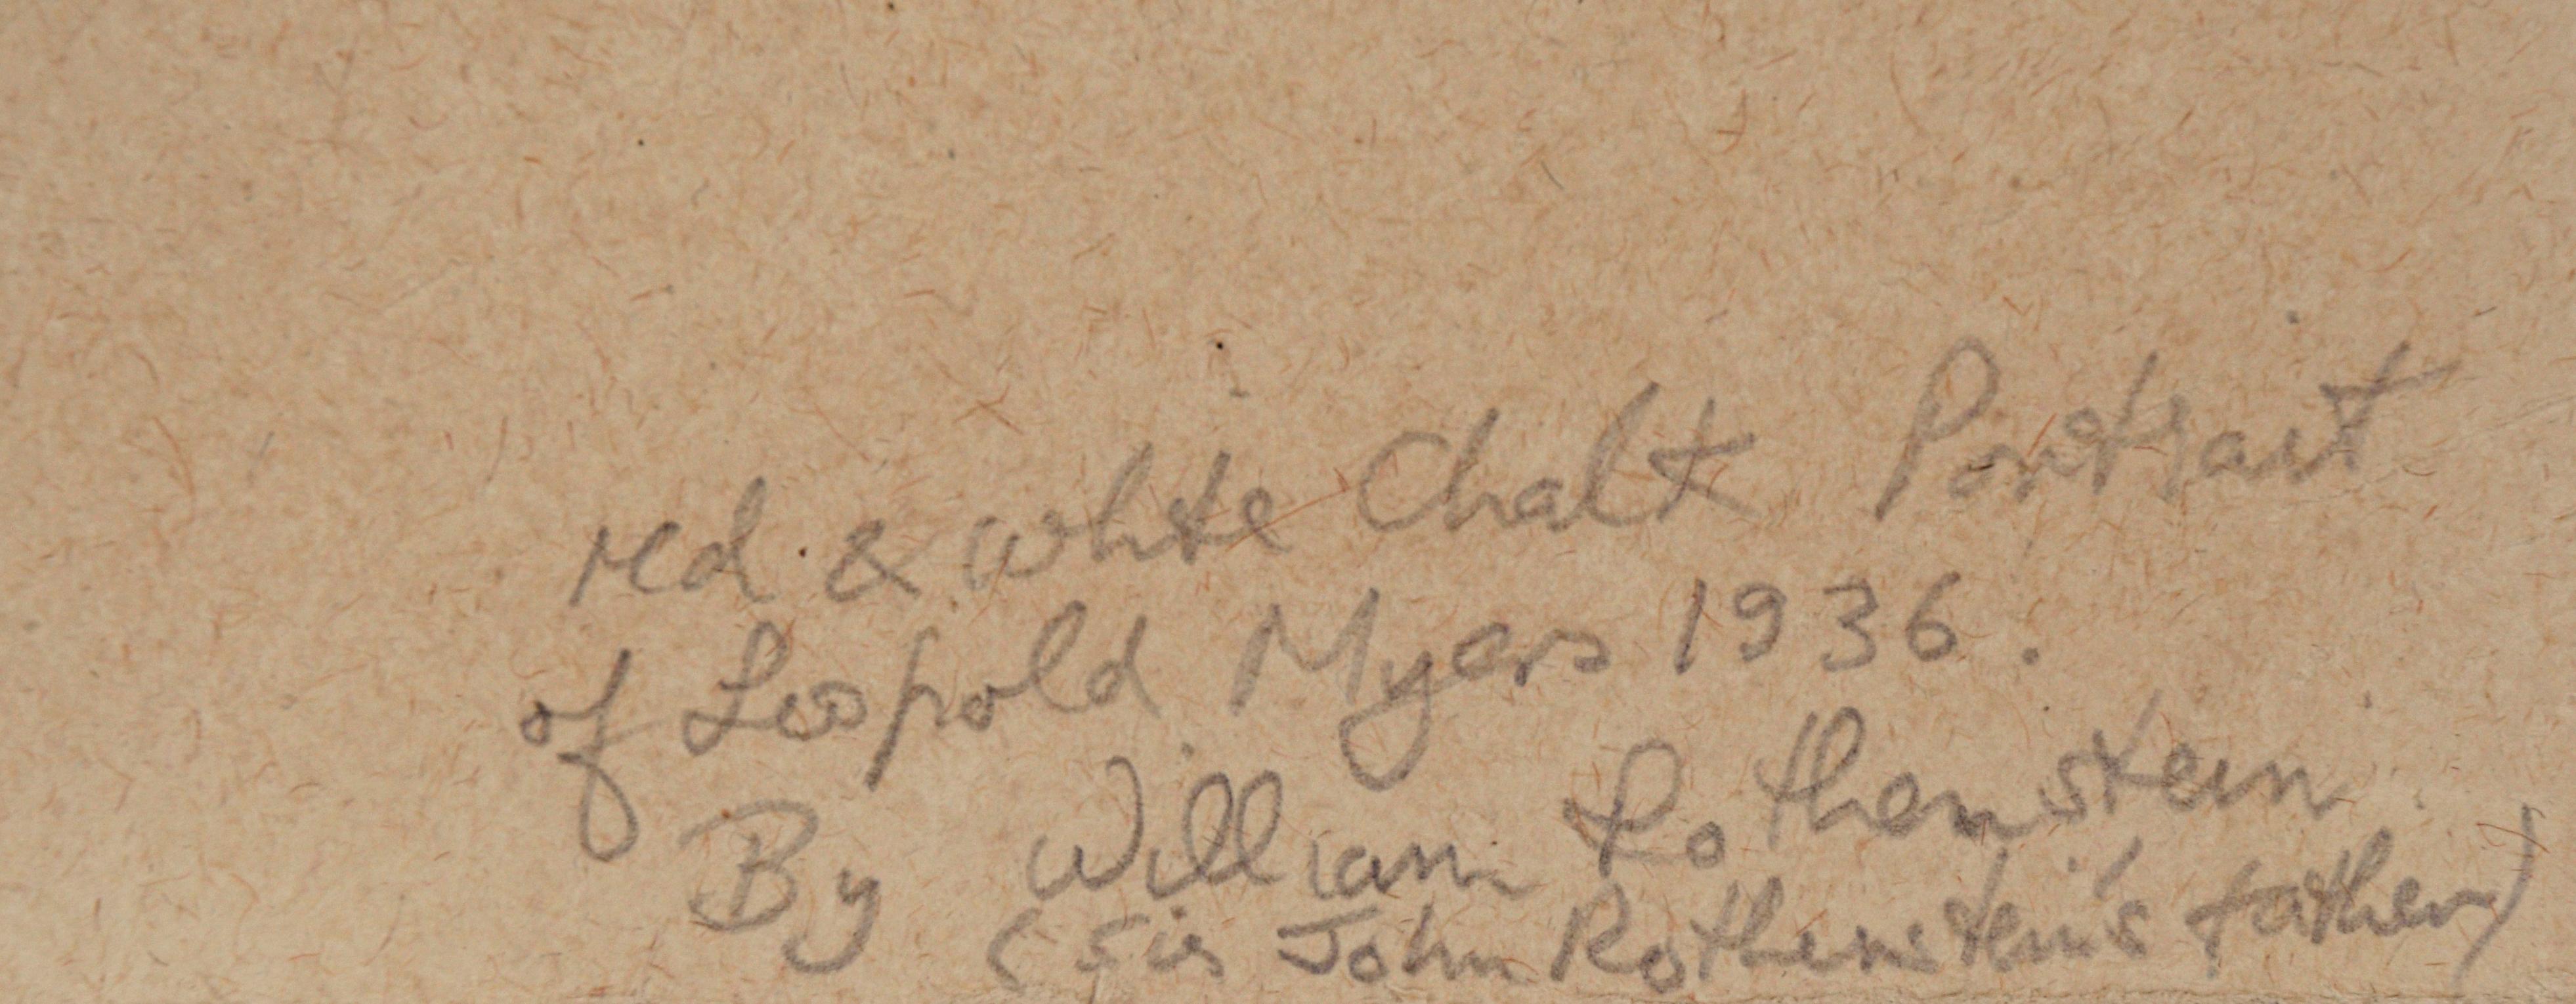 red & white Chalk Portrait
of Leopold Myers 1936.
By William Rothenstein
(Sir John Rothenstein's father)